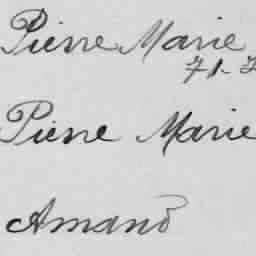 Pierre Marie
71-7
Pierre Marie
Amand